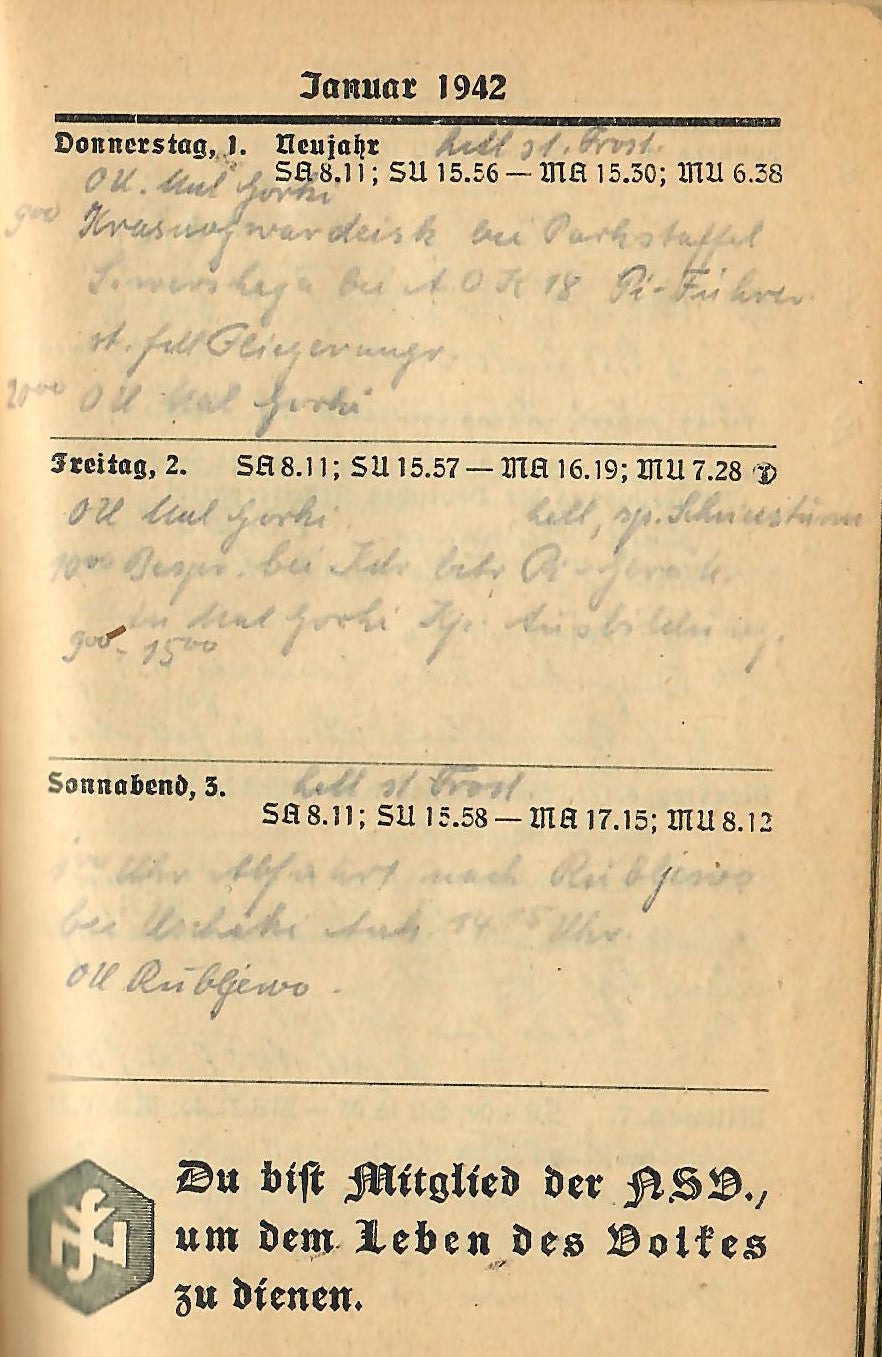 Januar 1942
Donnerstag, 1. Neujahr hell st. Frost.
SA 8.11; SU 15.56 — MA 15.30; MU 6.38
OU. Mal Gorki
9⁰⁰ Krasnogwardeisk bei Parkstaffel
Siwerskaja bei A.O.K 18 Pi-Führer
st.
20⁰⁰ OU Mal Gorki
Freitag, 2. SA 8.11; SU 15.57 — MA 16.19; MU 7.28
OU Mal Gorki. hell, sp. Schneesturm
10⁰⁰ Bespr. bei Kdr betr Pi-Gerät.
in Mal Gorki Kp. Ausbildung.
9⁰⁰ - 15⁰⁰
Sonnabend, 3. hell st Frost.
SA 8.11; SU 15.58 — MA 17.15; MU 8.12
Uhr Abfahrt nach Rubljewo
bei Uschaki Ank. 14¹⁵ Uhr.
OU Rubljewo.
Du bist Mitglied der NSV.,
um dem Leben des Volkes
zu dienen.